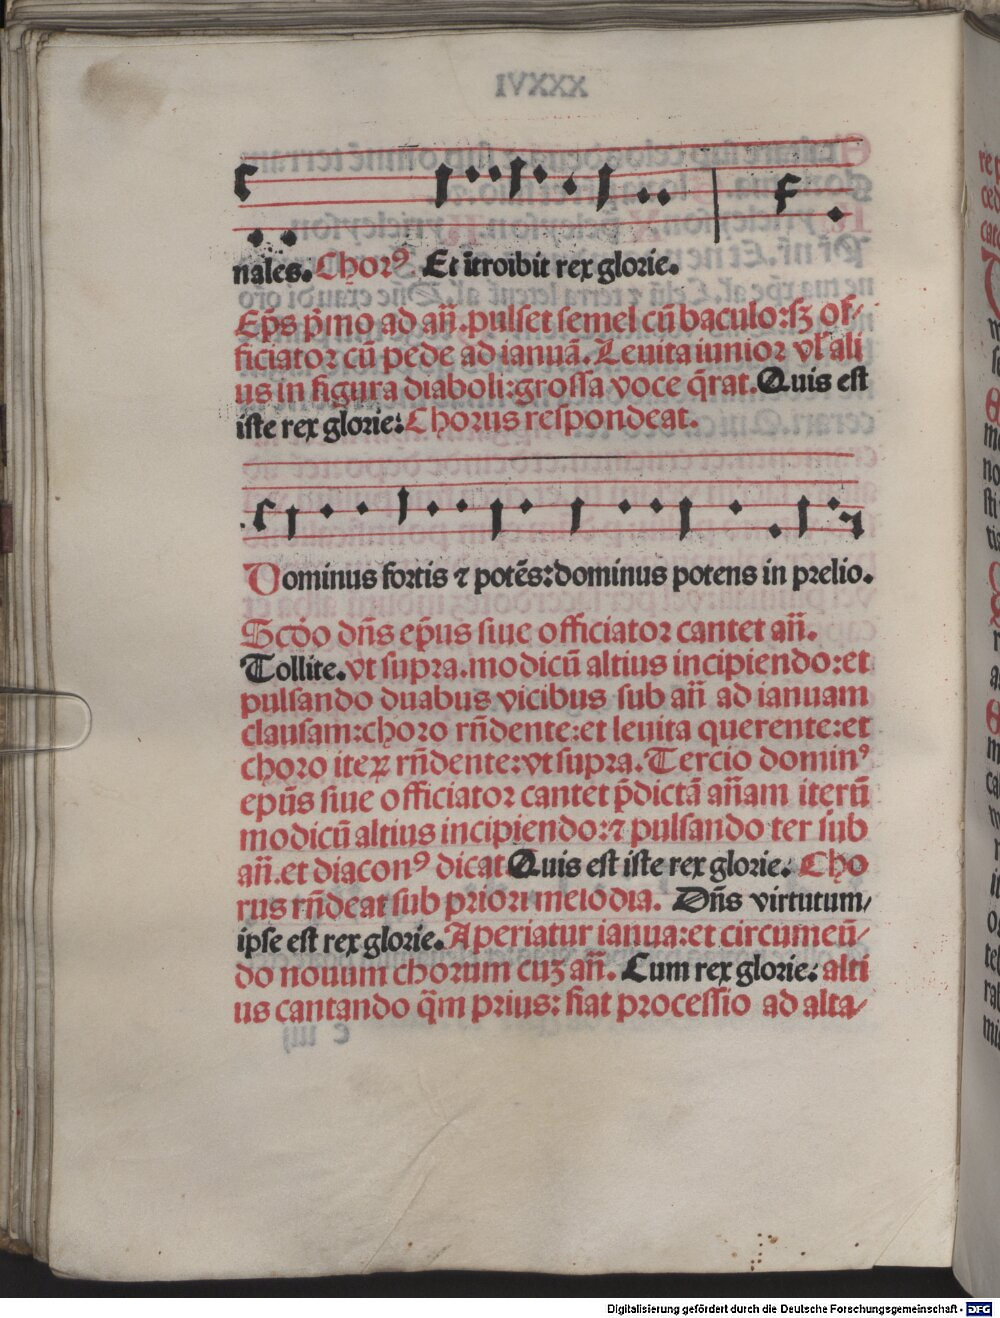 nales. Chorꝰ Et ītroibit rex glorie.
Ep̄s p̄mo ad an̄. pulset semel cū baculo: sꝫ of⸗
ficiator cū pede ad ianuā. Leuita iunior vl̓ ali
us in figura diaboli: grossa voce q̄rat. Quis est
iste rex glorie: Chorus respondeat.
Dominus fortis ⁊ potēs: dominus potens in prelio.
Scd̄o dn̄s ep̄us siue officiator cantet an̄.
Tollite. vt supra. modicū altius incipiendo: et
pulsando duabus vicibus sub an̄ ad ianuam
clausam: choro rn̄dente: et leuita querente: et
choro iteꝝ rn̄dente: vt supra. Tercio dominꝰ
epūs siue officiator cantet p̄dictā an̄am iterū
modicū altius incipiendo: ⁊ pulsando ter sub
an̄. et diaconꝰ dicat Quis est iste rex glorie: Cho
rus rn̄deat sub priori melodia. Dn̄s virtutum⸗
ipse est rex glorie. Aperiatur ianua: et circumeū⸗
do nouum chorum cuꝫ an̄. Cum rex glorie: alti
us cantando q̄m prius: fiat processio ad alta⸗
Digitalisierung gefördert durch die Deutsche Forschungsgemeinschaft - DFG